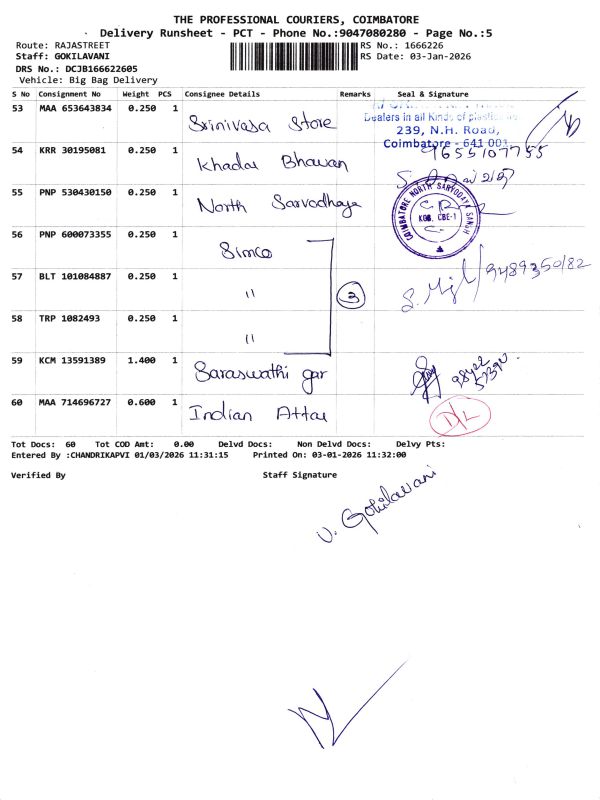 THE PROFESSIONAL COURIERS, COIMBATORE
Delivery Runsheet - PCT - Phone No.:9047080280 - Page No.:5
Route: RAJASTREET RS No.: 1666226
Staff: GOKILAVANI RS Date: 03-Jan-2026
DRS No.: DCJB166622605
Vehicle: Big Bag Delivery
S No Consignment No Weight PCS Consignee Details Remarks Seal & Signature
53 MAA 653643834 0.250 1 Srinivasa Store
Dealers in all Kinds of
239, N.H. Road,
Coimbatore - 641 001
54 KRR 30195081 0.250 1 Khadar Bhawan 9655107755
55 PNP 530430150 0.250 1 North Sarvodhaya
COIMBATORE NORTH SARVODAYA SANGH
KGB. CBE-1
56 PNP 600073355 0.250 1 Simco
57 BLT 101084887 0.250 1 " 3 9489350182
58 TRP 1082493 0.250 1 "
59 KCM 13591389 1.400 1 Saraswathi gar
60 MAA 714696727 0.600 1 Indian Attar D/L
Tot Docs: 60 Tot COD Amt: 0.00 Delvd Docs: Non Delvd Docs: Delvy Pts:
Entered By :CHANDRIKAPVI 01/03/2026 11:31:15 Printed On: 03-01-2026 11:32:00
Verified By Staff Signature
V. Gokilavani